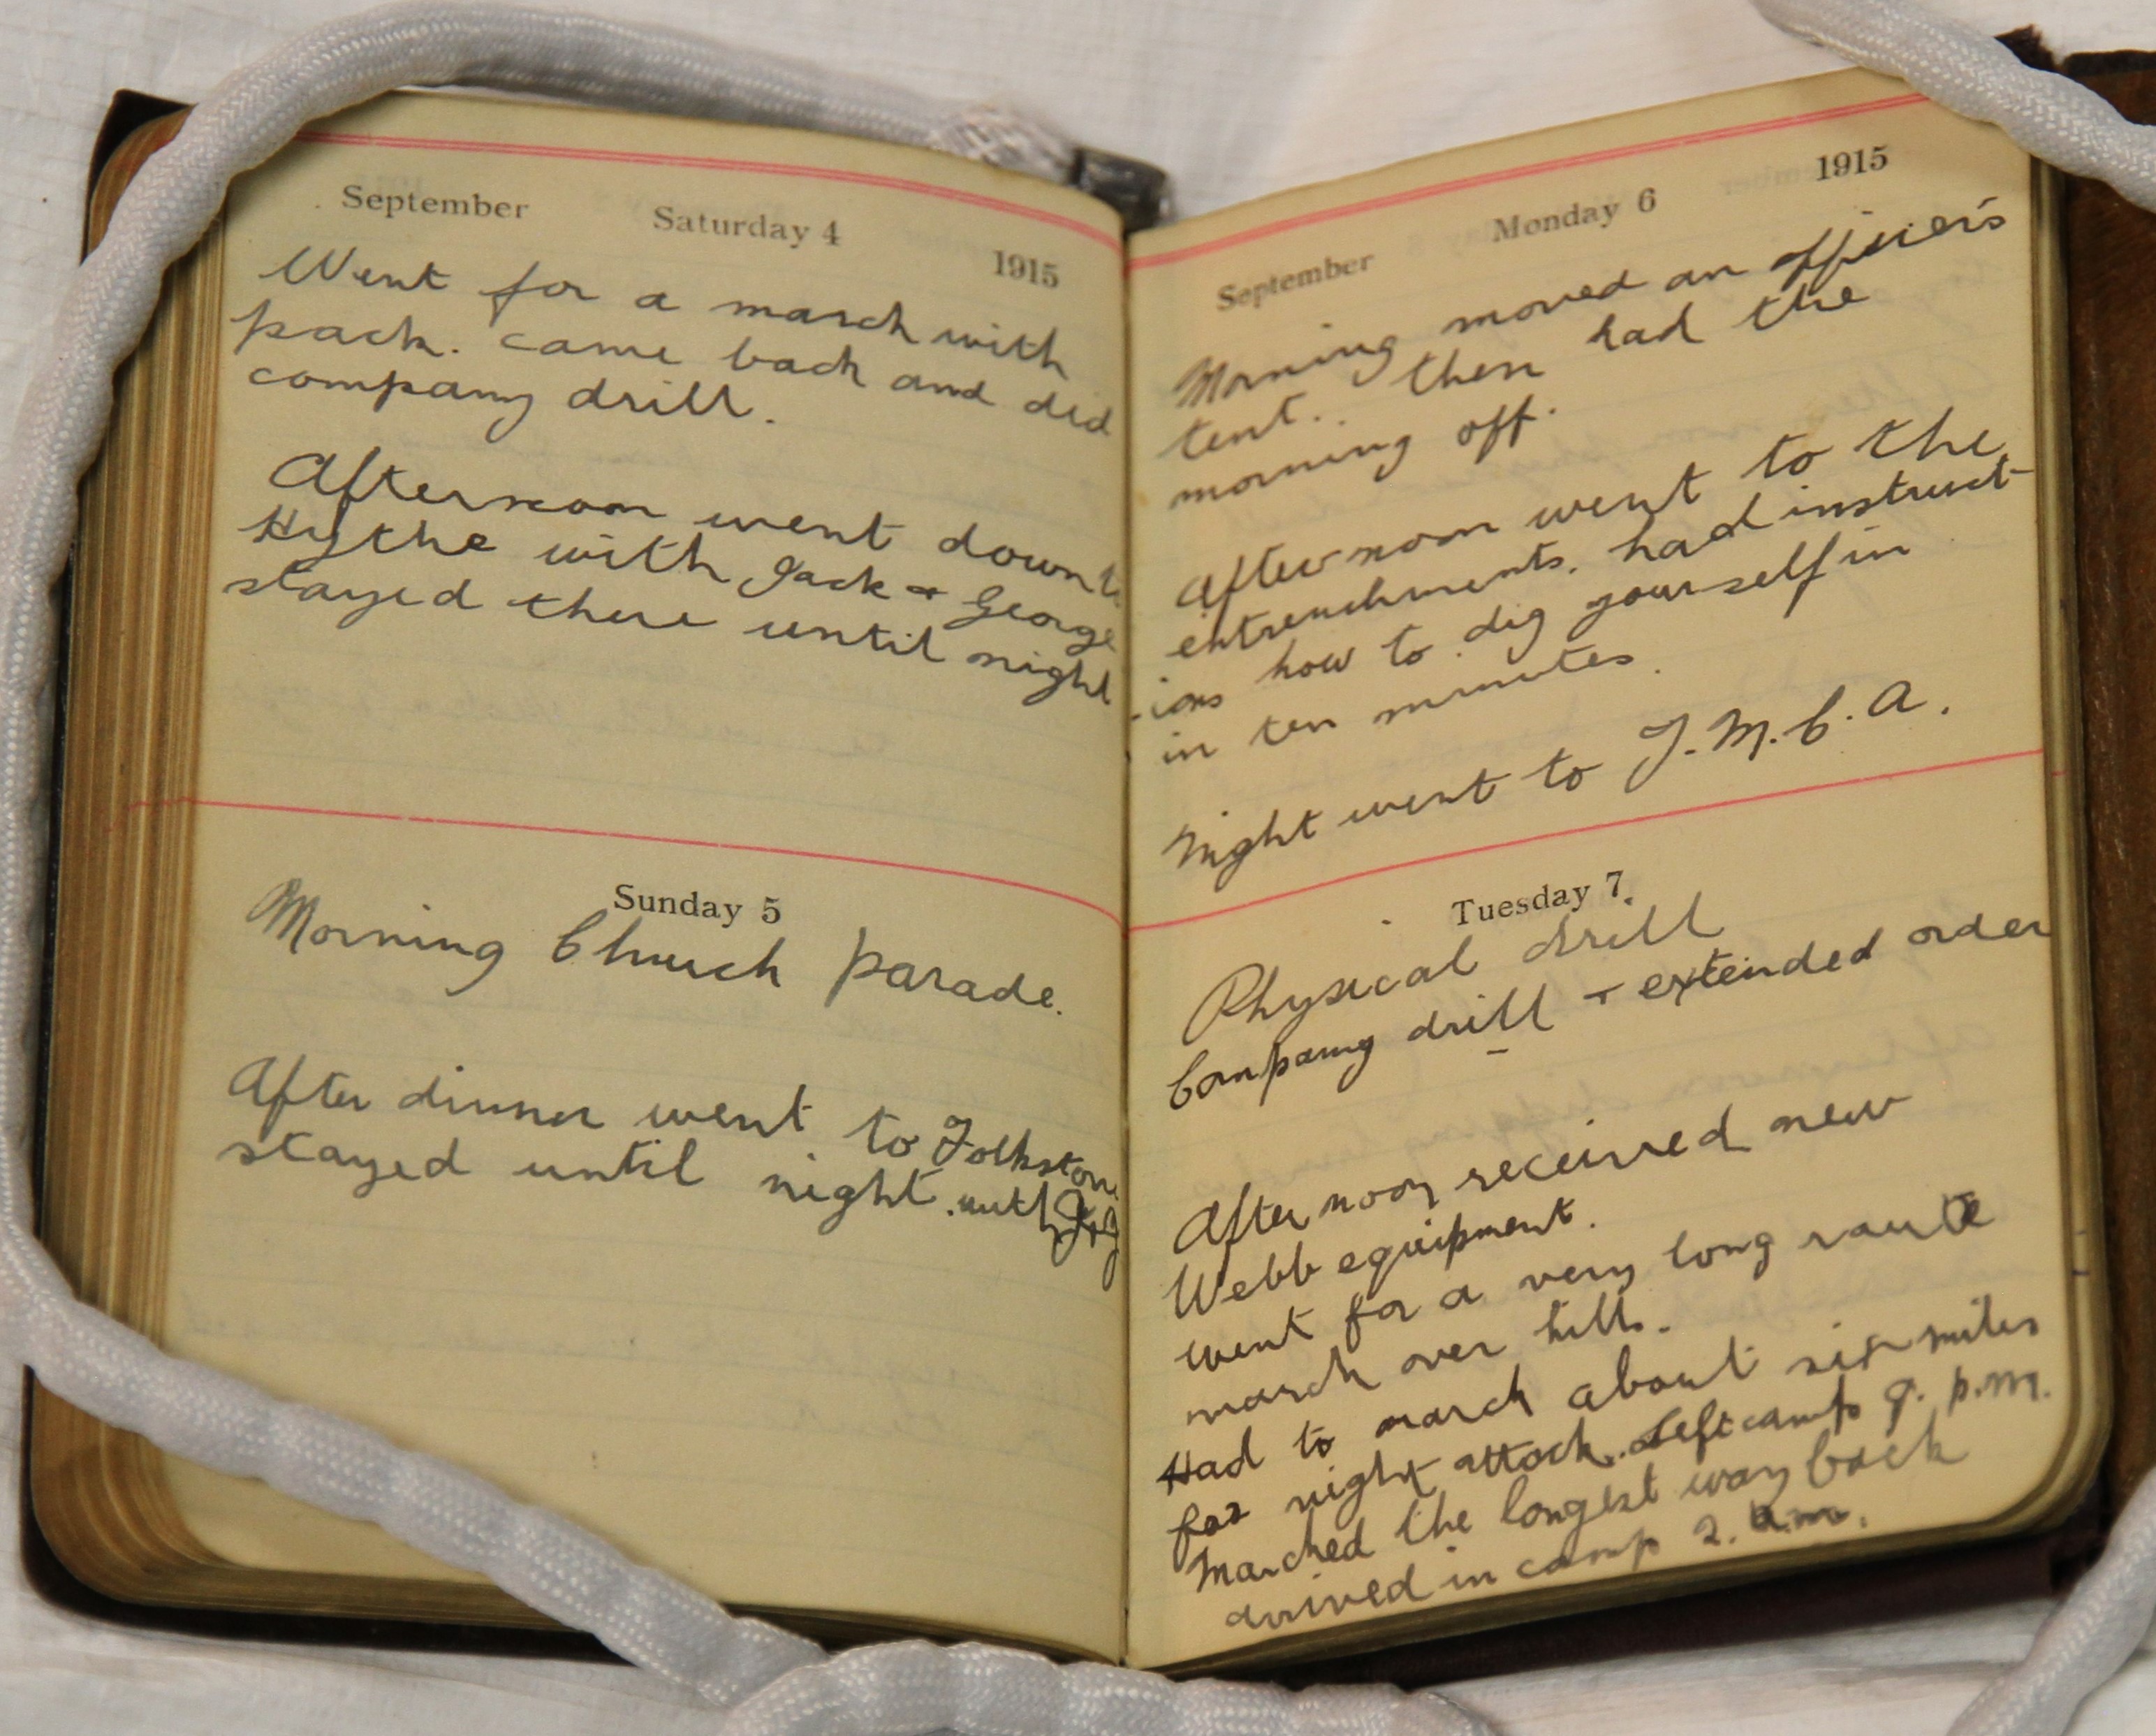 September Saturday 4 1915
Went for a march with
pack. came back and did
company drill.
Afternoon went down to
Hythe with Jack + George
stayed there until night
Sunday 5
Morning Church parade.
After dinner went to Folkston
stayed until night. with J + G
September Monday 6 1915
Morning moved an officer's
tent.. then had the
morning off.
Afternoon went to the
entrenchments. had instruct-
-ions how to dig yourself in
in ten minutes.
Night went to Y.M.C.A.
Tuesday 7.
Physical drill
Company drill + extended order
Afternoon received new
Webb equipment.
went for a very long route
march over hills.
Had to march about six miles
for night attack. Left camp 9. p.m.
Marched the longest way back
arrived in camp 2. a.m.